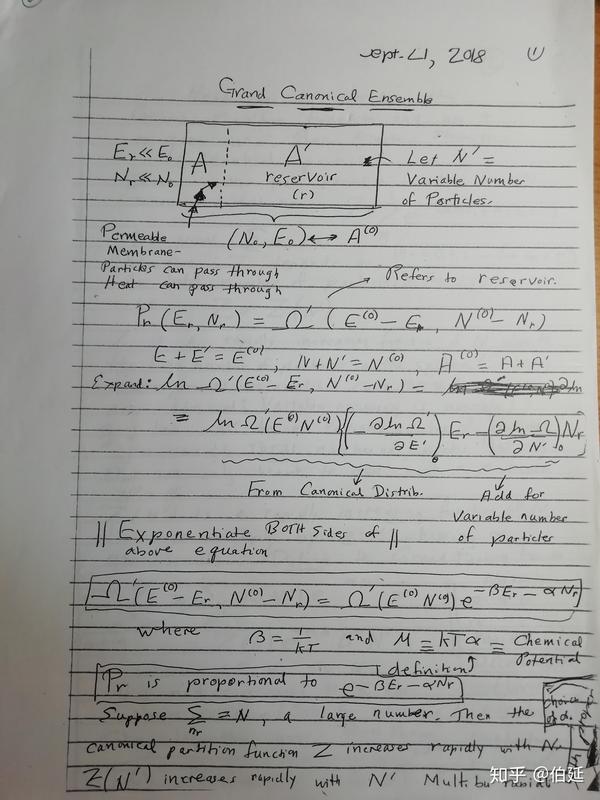 Sept 21, 2018 ①
Grand Canonical Ensemble
Er ≪ Eo
Nr ≪ No
A
A'
reservoir
(r)
Let N' =
Variable Number
of Particles.
Permeable
Membrane-
Particles can pass through
Heat can pass through
(No, Eo) ↔ A⁽⁰⁾
Refers to reservoir.
Pr (Er, Nr) = Ω' (E⁽⁰⁾ − Er, N⁽⁰⁾ − Nr)
E + E' = E⁽⁰⁾, N + N' = N⁽⁰⁾, A⁽⁰⁾ = A + A'
Expand: ln Ω' (E⁽⁰⁾ − Er, N⁽⁰⁾ − Nr) =
= ln Ω' (E⁽⁰⁾ N⁽⁰⁾) (−∂ln Ω'/∂E')₀ Er − (∂ln Ω/∂N')₀ Nr
From Canonical Distrib.
Add for
Variable number
of particles
|| Exponentiate BOTH Sides of ||
above equation
Ω' (E⁽⁰⁾ − Er, N⁽⁰⁾ − Nr) = Ω' (E⁽⁰⁾ N⁽⁰⁾) e^−βEr − αNr
where β = 1/kT and μ ≡ kTα = Chemical
Potential
(definition)
Pr is proportional to e^−βEr − αNr
Suppose Σ nr = N, a large number. Then the
choice
of α.
canonical partition function Z increases rapidly with N.
Z(N') increases rapidly with N'
知乎 @伯延